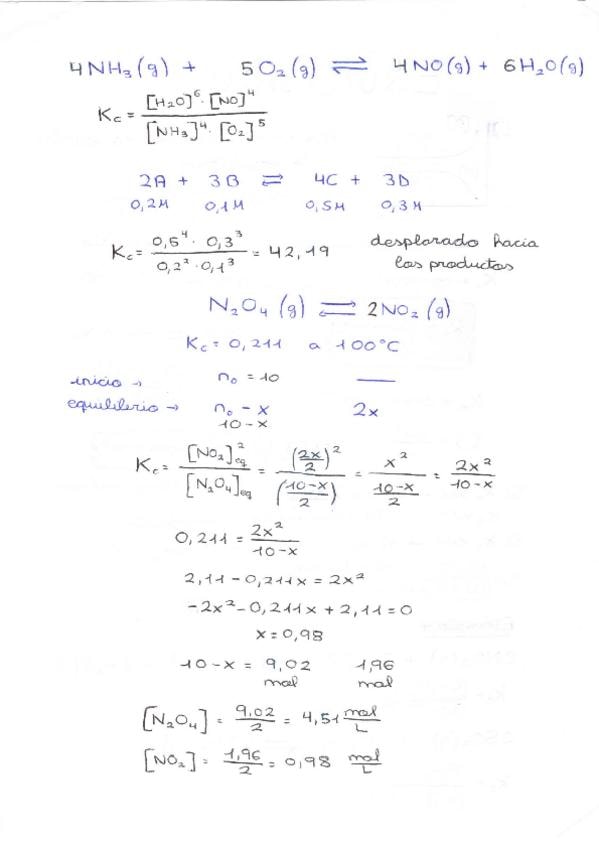 4NH₃(g) + 5O₂(g) ⇌ 4NO(g) + 6H₂O(g)
Kc = [H₂O]⁶·[NO]⁴ / [NH₃]⁴·[O₂]⁵
2A + 3B ⇌ 4C + 3D
0,2M 0,1M 0,5M 0,3M
Kc = 0,5⁴ · 0,3³ / 0,2² · 0,1³ = 42,19 desplazado hacia
los productos
N₂O₄(g) ⇌ 2NO₂(g)
Kc = 0,211 a 100°C
inicio → n₀ = 10 —
equilibrio → n₀ - x 2x
10-x
Kc = [NO₂]²eq / [N₂O₄]eq = (2x/2)² / (10-x/2) = x² / (10-x/2) = 2x² / 10-x
0,211 = 2x² / 10-x
2,11 - 0,211x = 2x²
-2x² - 0,211x + 2,11 = 0
x = 0,98
10-x = 9,02 1,96
mol mol
[N₂O₄] = 9,02/2 = 4,51 mol/L
[NO₂] = 1,96/2 = 0,98 mol/L